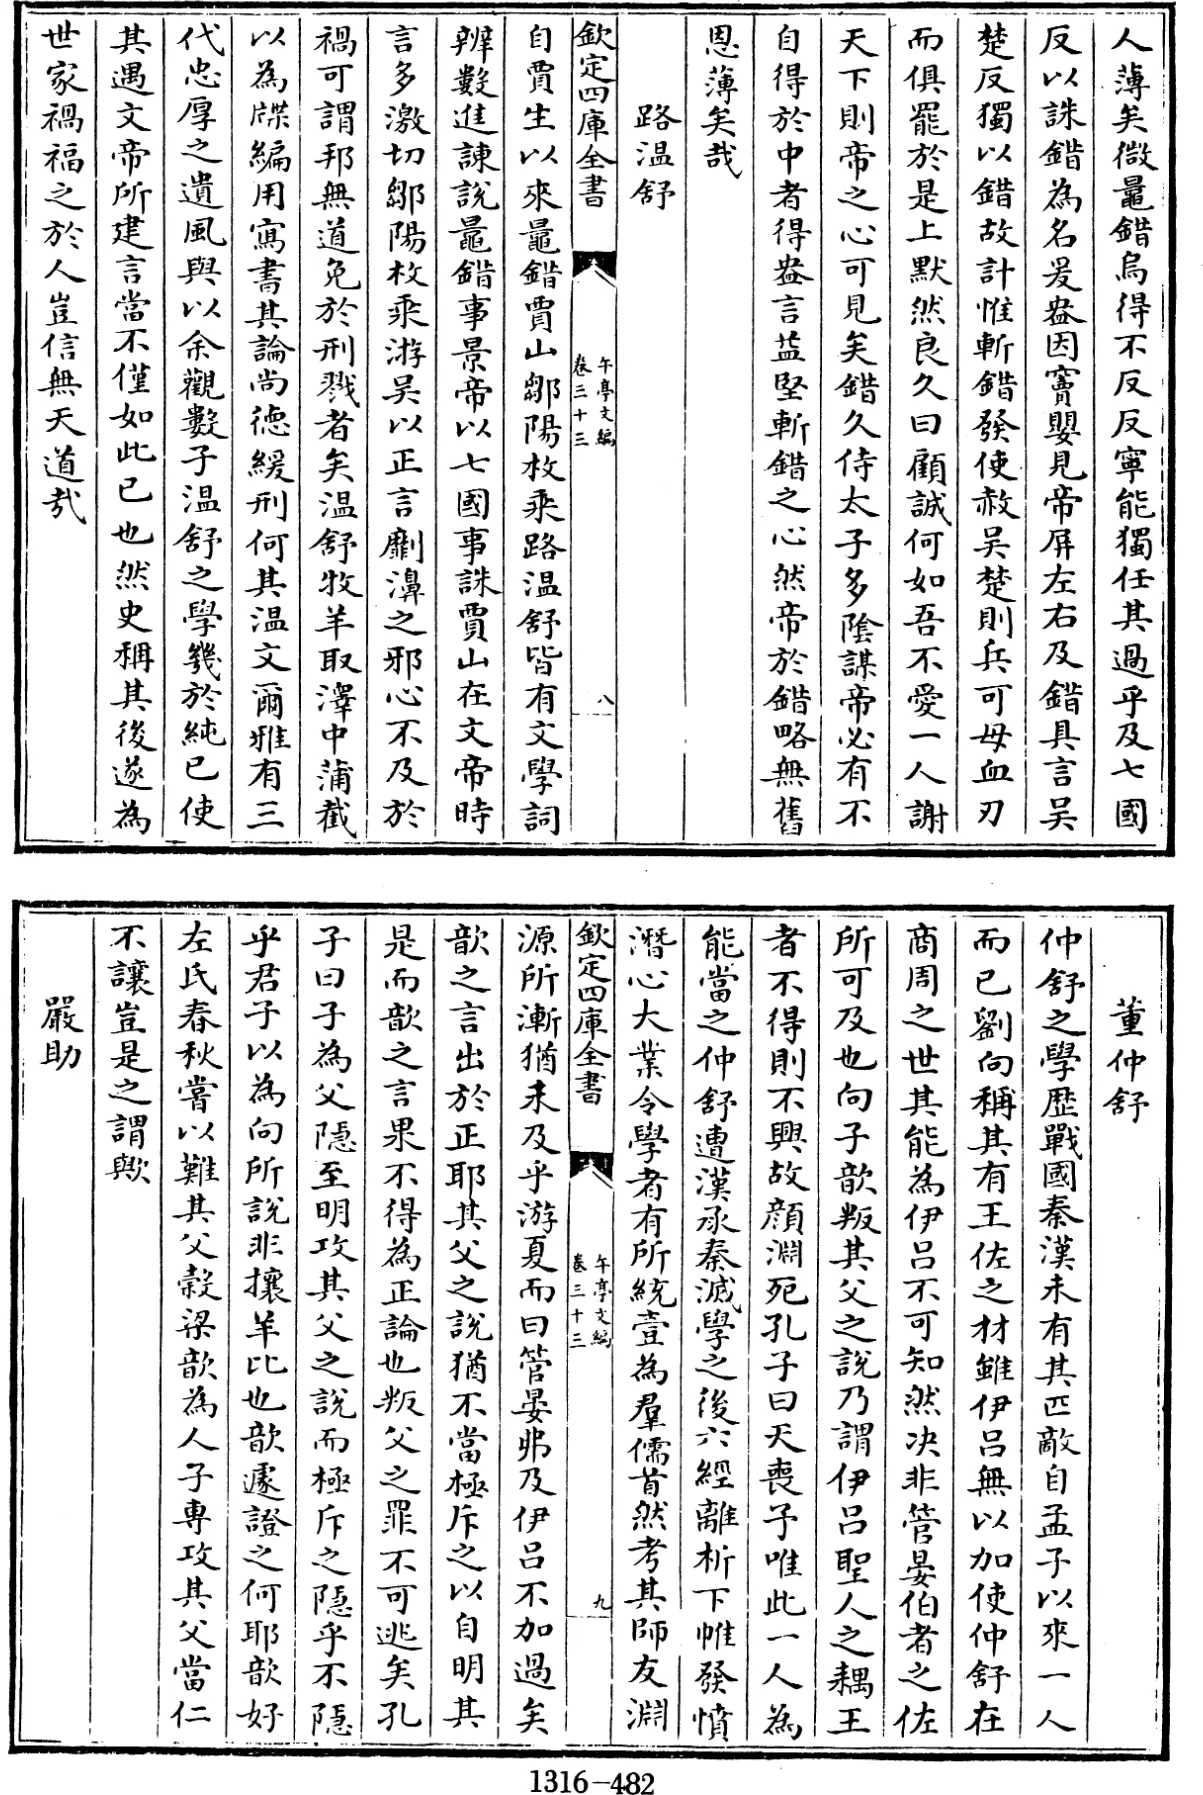 人薄矣微鼂錯烏得不反反寧能獨任其過乎及七國
反以誅錯為名爰盎因竇嬰見帝屏左右及錯具言吳
楚反獨以錯故計惟斬錯發使赦吳楚則兵可毋血刃
而俱罷於是上默然良久曰顧誠何如吾不愛一人謝
天下則帝之心可見矣錯久侍太子多陰謀帝必有不
自得於中者得盎言益堅斬錯之心然帝於錯略無舊
恩薄矣哉
路溫舒
欽定四庫全書
午亭文編
卷三十三
八
自賈生以來鼂錯賈山鄒陽枚乘路溫舒皆有文學詞
辨數進諫說鼂錯事景帝以七國事誅賈山在文帝時
言多激切鄒陽枚乘游吳以正言劘濞之邪心不及於
禍可謂邦無道免於刑戮者矣溫舒牧羊取澤中蒲截
以為牒編用寫書其論尚德緩刑何其温文爾雅有三
代忠厚之遺風與以余觀數子溫舒之學幾於純已使
其遇文帝所建言當不僅如此已也然史稱其後遂為
世家禍福之於人豈信無天道哉
董仲舒
仲舒之學歷戰國秦漢未有其匹敵自孟子以來一人
而已劉向稱其有王佐之材雖伊呂無以加使仲舒在
商周之世其能為伊呂不可知然决非管晏伯者之佐
所可及也向子歆叛其父之說乃謂伊呂聖人之耦王
者不得則不興故顏淵死孔子曰天喪予唯此一人為
能當之仲舒遭漢承秦滅學之後六經離析下帷發憤
潛心大業令學者有所統壹為羣儒首然考其師友淵
欽定四庫全書
午亭文編
卷三十三
九
源所漸猶未及乎游夏而曰管晏弗及伊呂不加過矣
歆之言出於正耶其父之說猶不當極斥之以自明其
是而歆之言果不得為正論也叛父之罪不可逃矣孔
子曰子為父隱至明攻其父之說而極斥之隱乎不隱
乎君子以為向所說非攘羊比也歆遽證之何耶歆好
左氏春秋嘗以難其父穀梁歆為人子専攻其父當仁
不讓豈是之謂歟
嚴助
1316-482